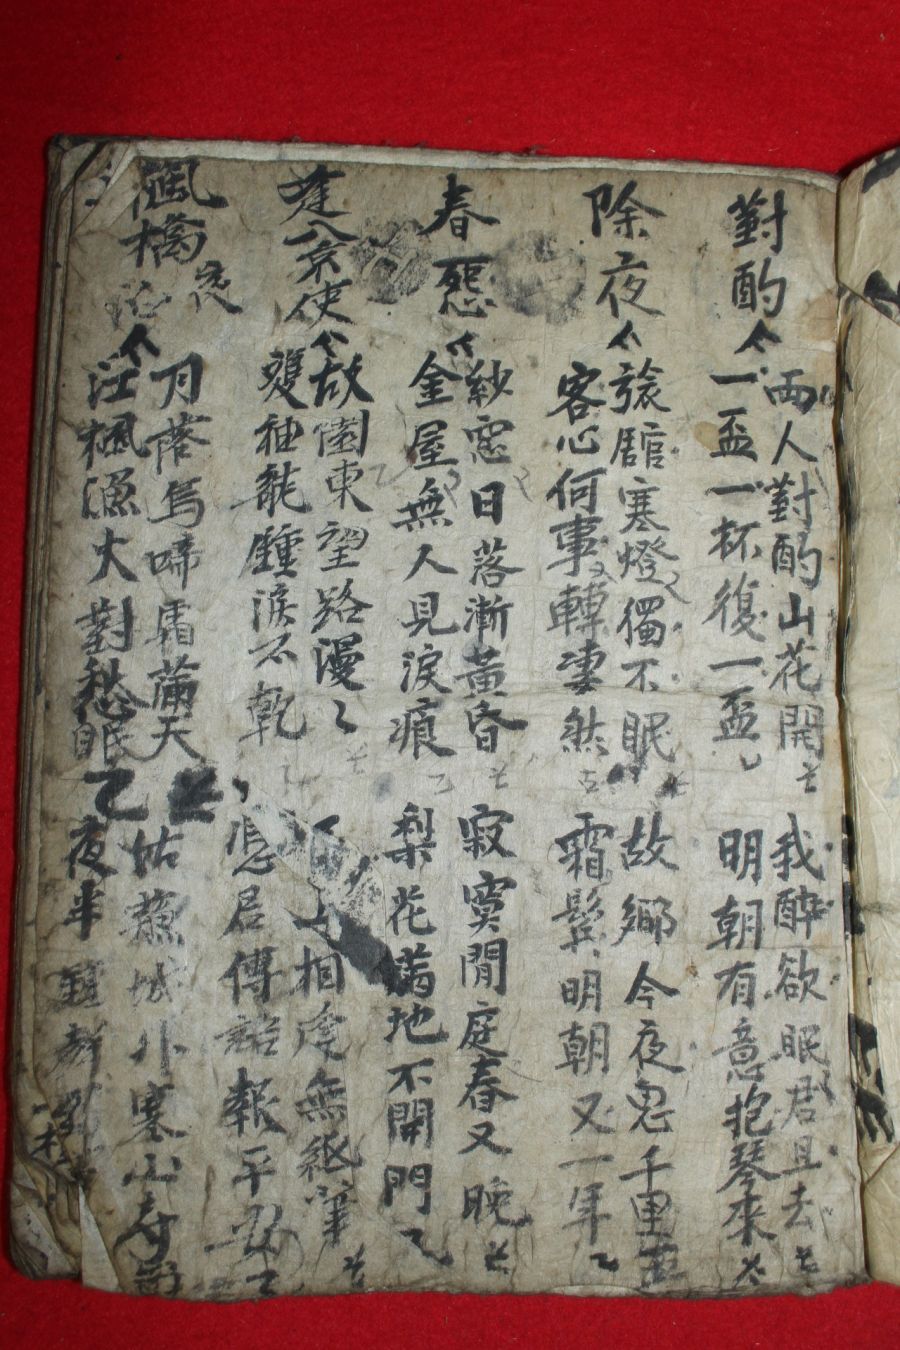 對酌
兩人對酌山花開
一盃一杯復一盃
我醉欲眠君且去
明朝有意抱琴來
除夜
旅舘寒燈獨不眠
客心何事轉凄然
故鄉今夜思千里
霜鬢明朝又一年
春怨
紗窓日落漸黃昏
金屋無人見淚痕
寂寞閒庭春又晚
梨花滿地不開門
逢入京使
故園東望路漫〻
雙袖龍鍾淚不乾
相逢無紙筆
憑君傳語報平安
楓橋夜泊
月落烏啼霜滿天
江楓漁火對愁眠
姑蘇城外寒山寺
夜半鍾聲到